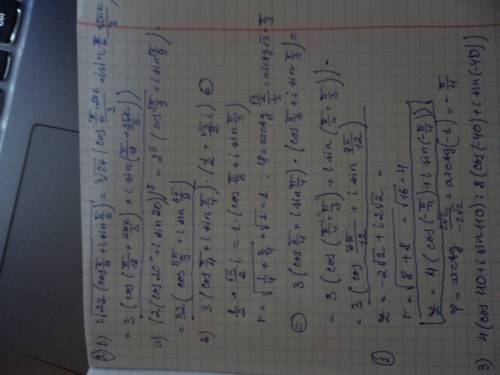 2) б) ∛27(cos π/6 + i sin π/6) = ∛27 (cos (π/6+2πk)/3 + i sin (π/6+2πk)/3)
= 3 (cos(π/18 + 2πk/3) + i sin(π/18 + 2πk/3))
а) (2(cos 20° + i sin 20))⁵ = 2⁵ (cos 5π/9 + i sin 5π/9) =
= 32 (cos 5π/9 + i sin 5π/9)
б) 3 (cos π/4 + i sin π/4) · (1/2 + √3/2 i) ⊜
1/2 + √3/2 i = 1 · (cos π/3 + i sin π/3)
r = √(1/4 + 3/4) = √1 = 1 ; φ = arctg = arctg √3 = π/3
⊜ 3 (cos π/4 + i sin π/4) · (cos π/3 + i sin π/3) =
= 3 (cos (π/4 + π/3) + i sin (π/4 + π/3)) =
= 3 (cos 7π/12 + i sin 7π/12)
z = -2√2 + i 2√2 =
r = √(8 + 8) = √16 = 4
z = 4 (cos(-π/4) + i sin(-π/4))
φ = arctg 2√2/-2√2 = arctg(-1) = -π/4
3) 4 (cos 110 + i sin 110) : 8 (cos(-40) + i sin(-40)